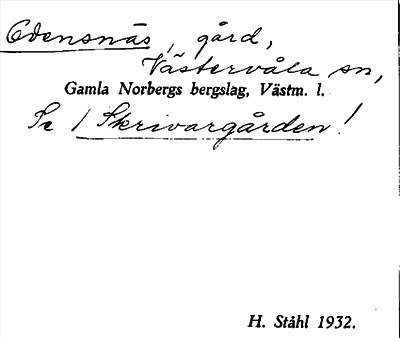 Odensnäs, gård,
Västervåla sn,
Gamla Norbergs bergslag, Västm. l.
Se / Skrivargården!
H. Ståhl 1932.